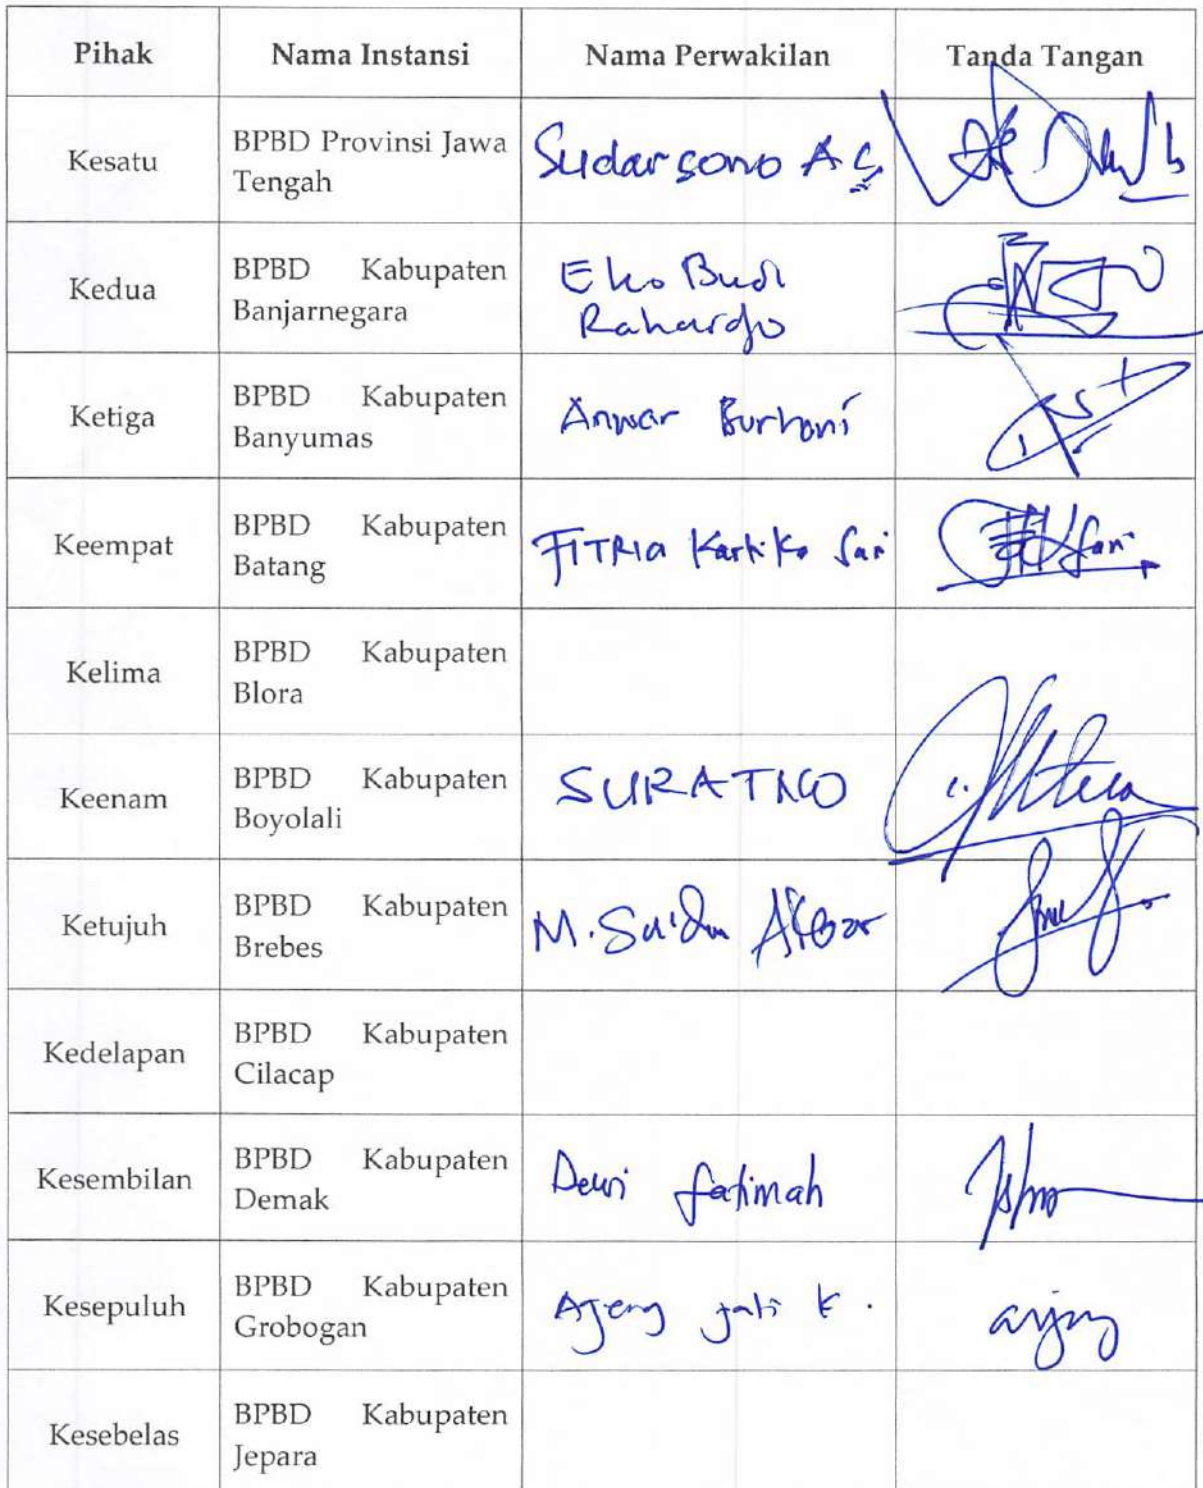 Pihak Nama Instansi Nama Perwakilan Tanda Tangan
Kesatu
BPBD Provinsi Jawa
Tengah
Sudarsono AS
Kedua
BPBD Kabupaten
Banjarnegara
Eko Budi
Rahardjo
Ketiga
BPBD Kabupaten
Banyumas
Anwar Burhoni
Keempat
BPBD Kabupaten
Batang
FITRIa Kartika Sari
Kelima
BPBD Kabupaten
Blora
Keenam
BPBD Kabupaten
Boyolali
SURATNO
Ketujuh
BPBD Kabupaten
Brebes
M. Akbar
Kedelapan
BPBD Kabupaten
Cilacap
Kesembilan
BPBD Kabupaten
Demak
Dewi fatimah
Kesepuluh
BPBD Kabupaten
Grobogan
Ajeng jati K.
Kesebelas
BPBD Kabupaten
Jepara